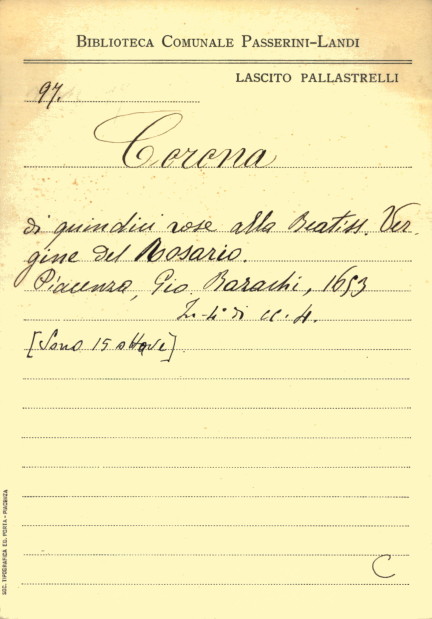 BIBLIOTECA COMUNALE PASSERINI-LANDI
LASCITO PALLASTRELLI
97.
Corona
di quindici rose alla Beatiss. Ver-
gine del Rosario.
Piacenza, Gio. Bazachi, 1653
In-4° di cc. 4.
[Sono 15 ottave]
SOC. TIPOGRAFICA ED. PORTA - PIACENZA
C